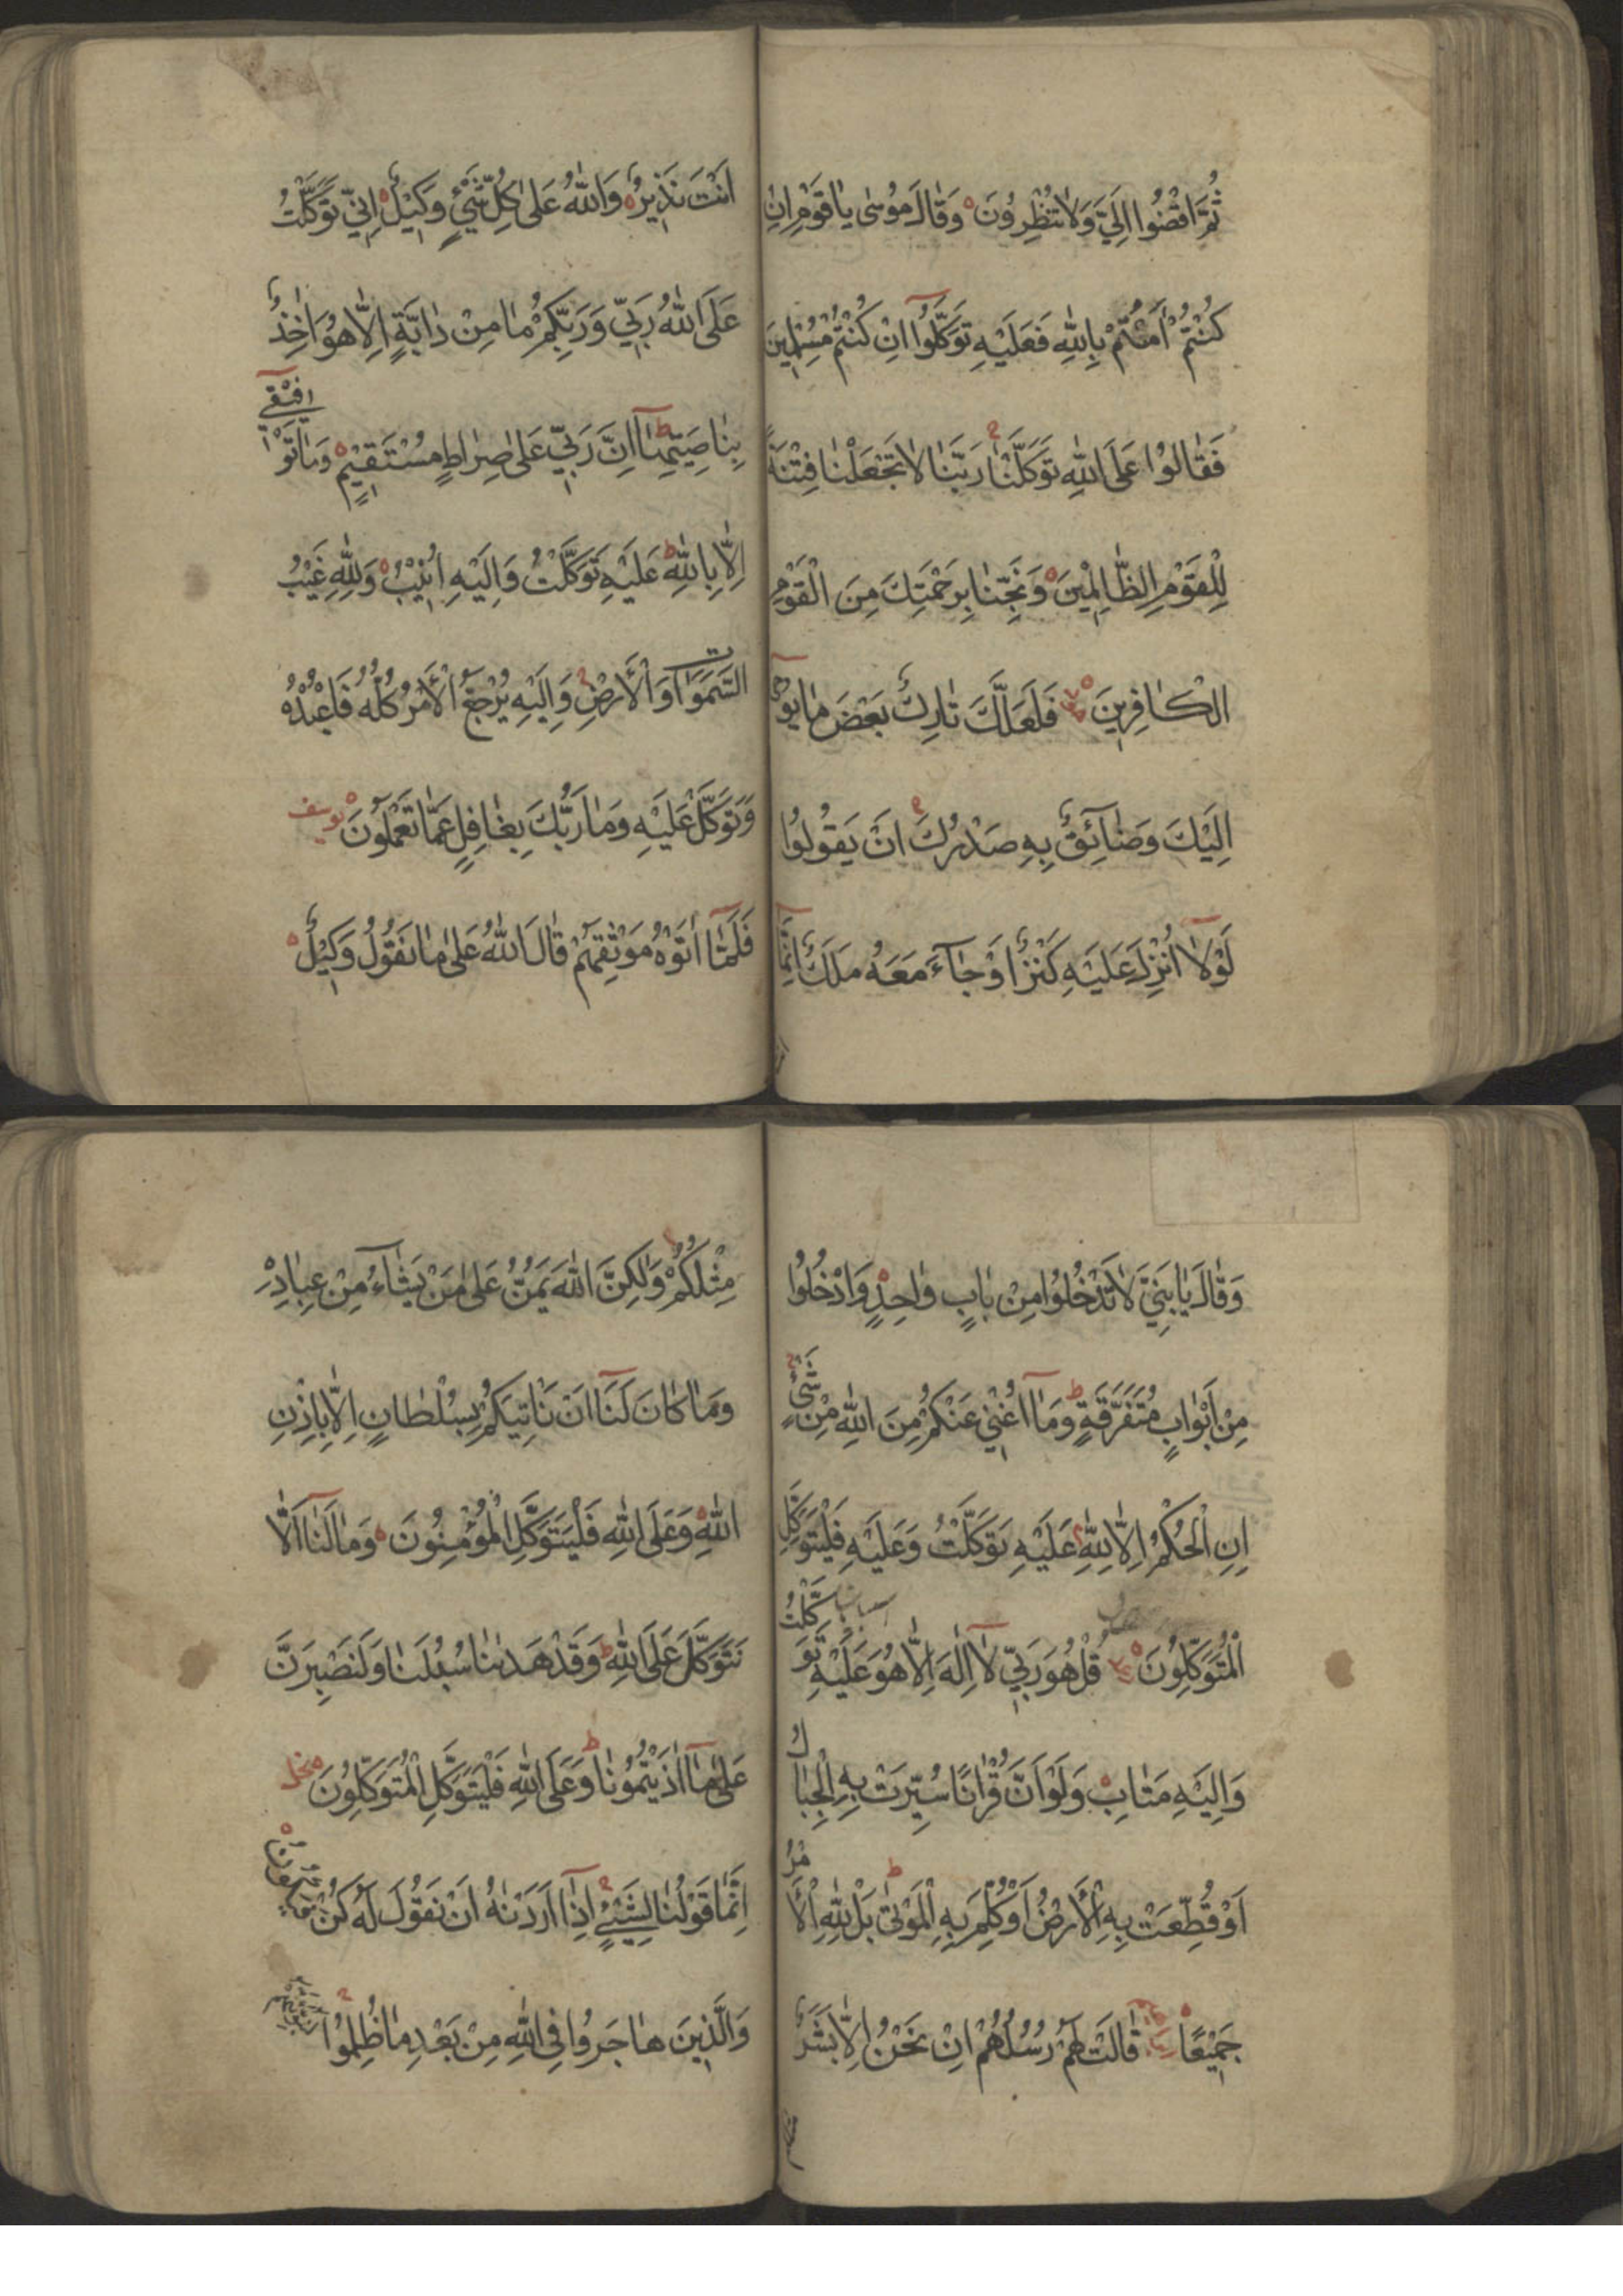 ثُمَّ اقْضُوا اِلَيَّ وَلَا تُنْظِرُونَ وَقَالَ مُوسٰى يَا قَوْمِ اِنْ
كُنْتُمْ اٰمَنْتُمْ بِاللّٰهِ فَعَلَيْهِ تَوَكَّلُوا اِنْ كُنْتُمْ مُسْلِمِينَ
فَقَالُوا عَلَى اللّٰهِ تَوَكَّلْنَا رَبَّنَا لَا تَجْعَلْنَا فِتْنَةً
لِلْقَوْمِ الظَّالِمِينَ وَنَجِّنَا بِرَحْمَتِكَ مِنَ الْقَوْمِ
الْكَافِرِينَ فَلَعَلَّكَ تَارِكٌ بَعْضَ مَا يُوحٰى
اِلَيْكَ وَضَائِقٌ بِهِ صَدْرُكَ اَنْ يَقُولُوا
لَوْلَا اُنْزِلَ عَلَيْهِ كَنْزٌ اَوْ جَاءَ مَعَهُ مَلَكٌ اِنَّمَا
اَنْتَ نَذِيرٌ وَاللّٰهُ عَلٰى كُلِّ شَيْءٍ وَكِيلٌ اِنِّي تَوَكَّلْتُ
عَلَى اللّٰهِ رَبِّي وَرَبِّكُمْ مَا مِنْ دَابَّةٍ اِلَّا هُوَ اٰخِذٌ
بِنَاصِيَتِهَا اِنَّ رَبِّي عَلٰى صِرَاطٍ مُسْتَقِيمٍ وَمَا تَوْفِيقِي
اِلَّا بِاللّٰهِ عَلَيْهِ تَوَكَّلْتُ وَاِلَيْهِ اُنِيبُ وَلِلّٰهِ غَيْبُ
السَّمٰوَاتِ وَالْاَرْضِ وَاِلَيْهِ يُرْجَعُ الْاَمْرُ كُلُّهُ فَاعْبُدْهُ
وَتَوَكَّلْ عَلَيْهِ وَمَا رَبُّكَ بِغَافِلٍ عَمَّا تَعْمَلُونَ يوسف
فَلَمَّا اٰتَوْهُ مَوْثِقَهُمْ قَالَ اللّٰهُ عَلٰى مَا نَقُولُ وَكِيلٌ
وَقَالَ يَا بَنِيَّ لَا تَدْخُلُوا مِنْ بَابٍ وَاحِدٍ وَادْخُلُوا
مِنْ اَبْوَابٍ مُتَفَرِّقَةٍ وَمَا اُغْنِي عَنْكُمْ مِنَ اللّٰهِ مِنْ شَيْءٍ
اِنِ الْحُكْمُ اِلَّا لِلّٰهِ عَلَيْهِ تَوَكَّلْتُ وَعَلَيْهِ فَلْيَتَوَكَّلِ
الْمُتَوَكِّلُونَ قُلْ هُوَ رَبِّي لَا اِلٰهَ اِلَّا هُوَ عَلَيْهِ تَوَكَّلْتُ
وَاِلَيْهِ مَتَابِ وَلَوْ اَنَّ قُرْاٰنًا سُيِّرَتْ بِهِ الْجِبَالُ
اَوْ قُطِّعَتْ بِهِ الْاَرْضُ اَوْ كُلِّمَ بِهِ الْمَوْتٰى بَلْ لِلّٰهِ الْاَمْرُ
جَمِيعًا قَالَتْ لَهُمْ رُسُلُهُمْ اِنْ نَحْنُ اِلَّا بَشَرٌ
مِثْلُكُمْ وَلٰكِنَّ اللّٰهَ يَمُنُّ عَلٰى مَنْ يَشَاءُ مِنْ عِبَادِهِ
وَمَا كَانَ لَنَا اَنْ نَاْتِيَكُمْ بِسُلْطَانٍ اِلَّا بِاِذْنِ
اللّٰهِ وَعَلَى اللّٰهِ فَلْيَتَوَكَّلِ الْمُؤْمِنُونَ وَمَا لَنَا اَلَّا
نَتَوَكَّلَ عَلَى اللّٰهِ وَقَدْ هَدٰىنَا سُبُلَنَا وَلَنَصْبِرَنَّ
عَلٰى مَا اٰذَيْتُمُونَا وَعَلَى اللّٰهِ فَلْيَتَوَكَّلِ الْمُتَوَكِّلُونَ نحل
اِنَّمَا قَوْلُنَا لِشَيْءٍ اِذَا اَرَدْنَاهُ اَنْ نَقُولَ لَهُ كُنْ فَيَكُونُ
وَالَّذِينَ هَاجَرُوا فِي اللّٰهِ مِنْ بَعْدِ مَا ظُلِمُوا